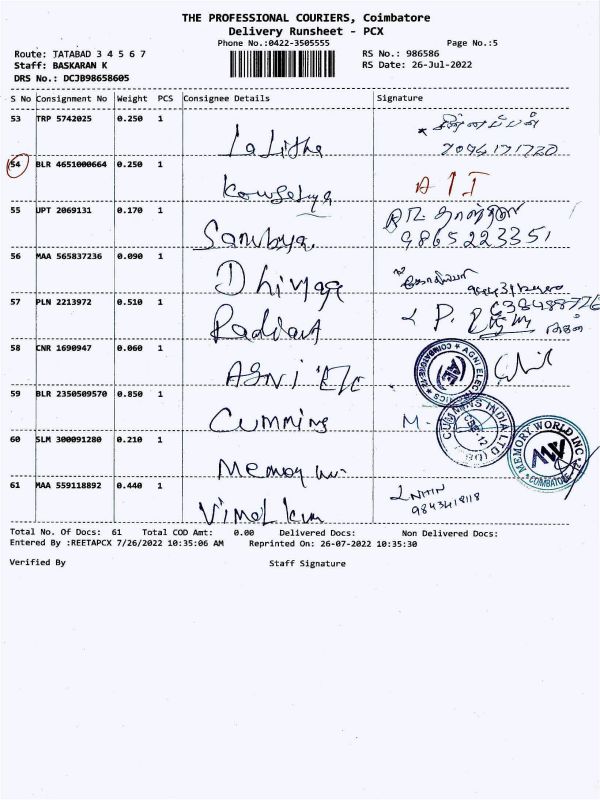 THE PROFESSIONAL COURIERS, Coimbatore
Delivery Runsheet - PCX
Phone No.:0422-3505555
Page No.:5
Route: TATABAD 3 4 5 6 7
RS No.: 986586
Staff: BASKARAN K
RS Date: 26-Jul-2022
DRS No.: DCJB98658605
S No Consignment No Weight PCS Consignee Details Signature
53 TRP 5742025 0.250 1 Lalitha
54 BLR 4651000664 0.250 1 Kowsalya
55 UPT 2069131 0.170 1
9865223351
56 MAA 565837236 0.090 1 Dhivya
57 PLN 2213972 0.510 1 Radiant
58 CNR 1690947 0.060 1 AGNI Ele
AGNI ELECTRONICS
59 BLR 2350509570 0.850 1 Cummins
CUMMINS INDIA LTD
60 SLM 300091280 0.210 1
MEMORY WORLD INC
61 MAA 559118892 0.440 1 Vimal kum
Total No. Of Docs: 61 Total COD Amt: 0.00 Delivered Docs: Non Delivered Docs:
Entered By :REETAPCX 7/26/2022 10:35:06 AM Reprinted On: 26-07-2022 10:35:30
Verified By Staff Signature